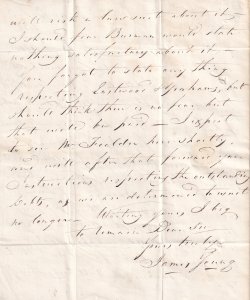 will risk a law suit about it,
I should fear Burman would state
nothing satisfactory about it —
you forgot to state any thing
respecting Eastwood & Grahams, but
should think there is no fear but
that will be paid — I expect
to see Mr here shortly
and will after that forward you
Instructions respecting the outstanding
debts, as we are determined to wait
no longer — Waiting yours I beg
to remain Dear Sir
Yours truly
James Young